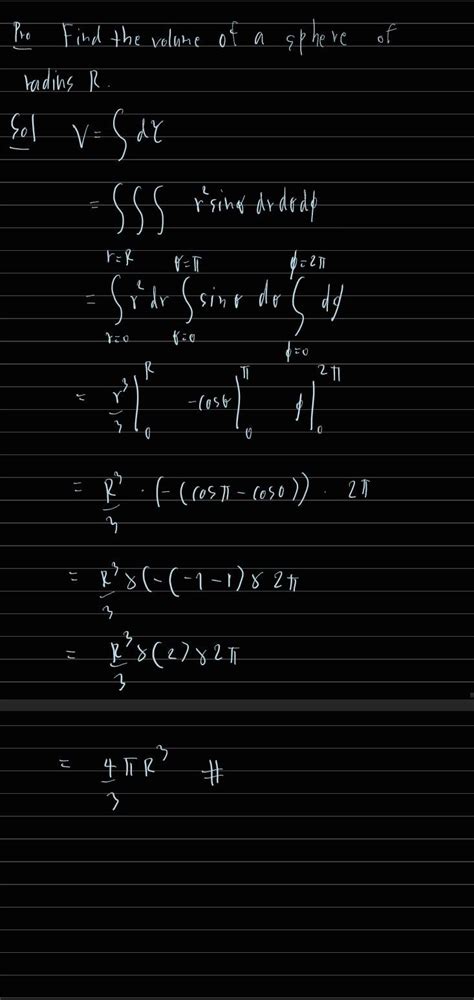 Pro Find the volume of a sphere of
radius R.
Sol V = ∫ dτ
= ∫∫∫ r² sinθ dr dθ dϕ
r=R θ=π ϕ=2π
= ∫ r² dr ∫ sinθ dθ ∫ dϕ
r=0 θ=0 ϕ=0
= r³/3 |₀ᴿ -cosθ |₀^π ϕ |₀^2π
= R³/3 · (-(cosπ - cos0)) · 2π
= R³/3 × (-(-1-1) × 2π
= R³/3 × (2) × 2π
= 4/3 πR³ #